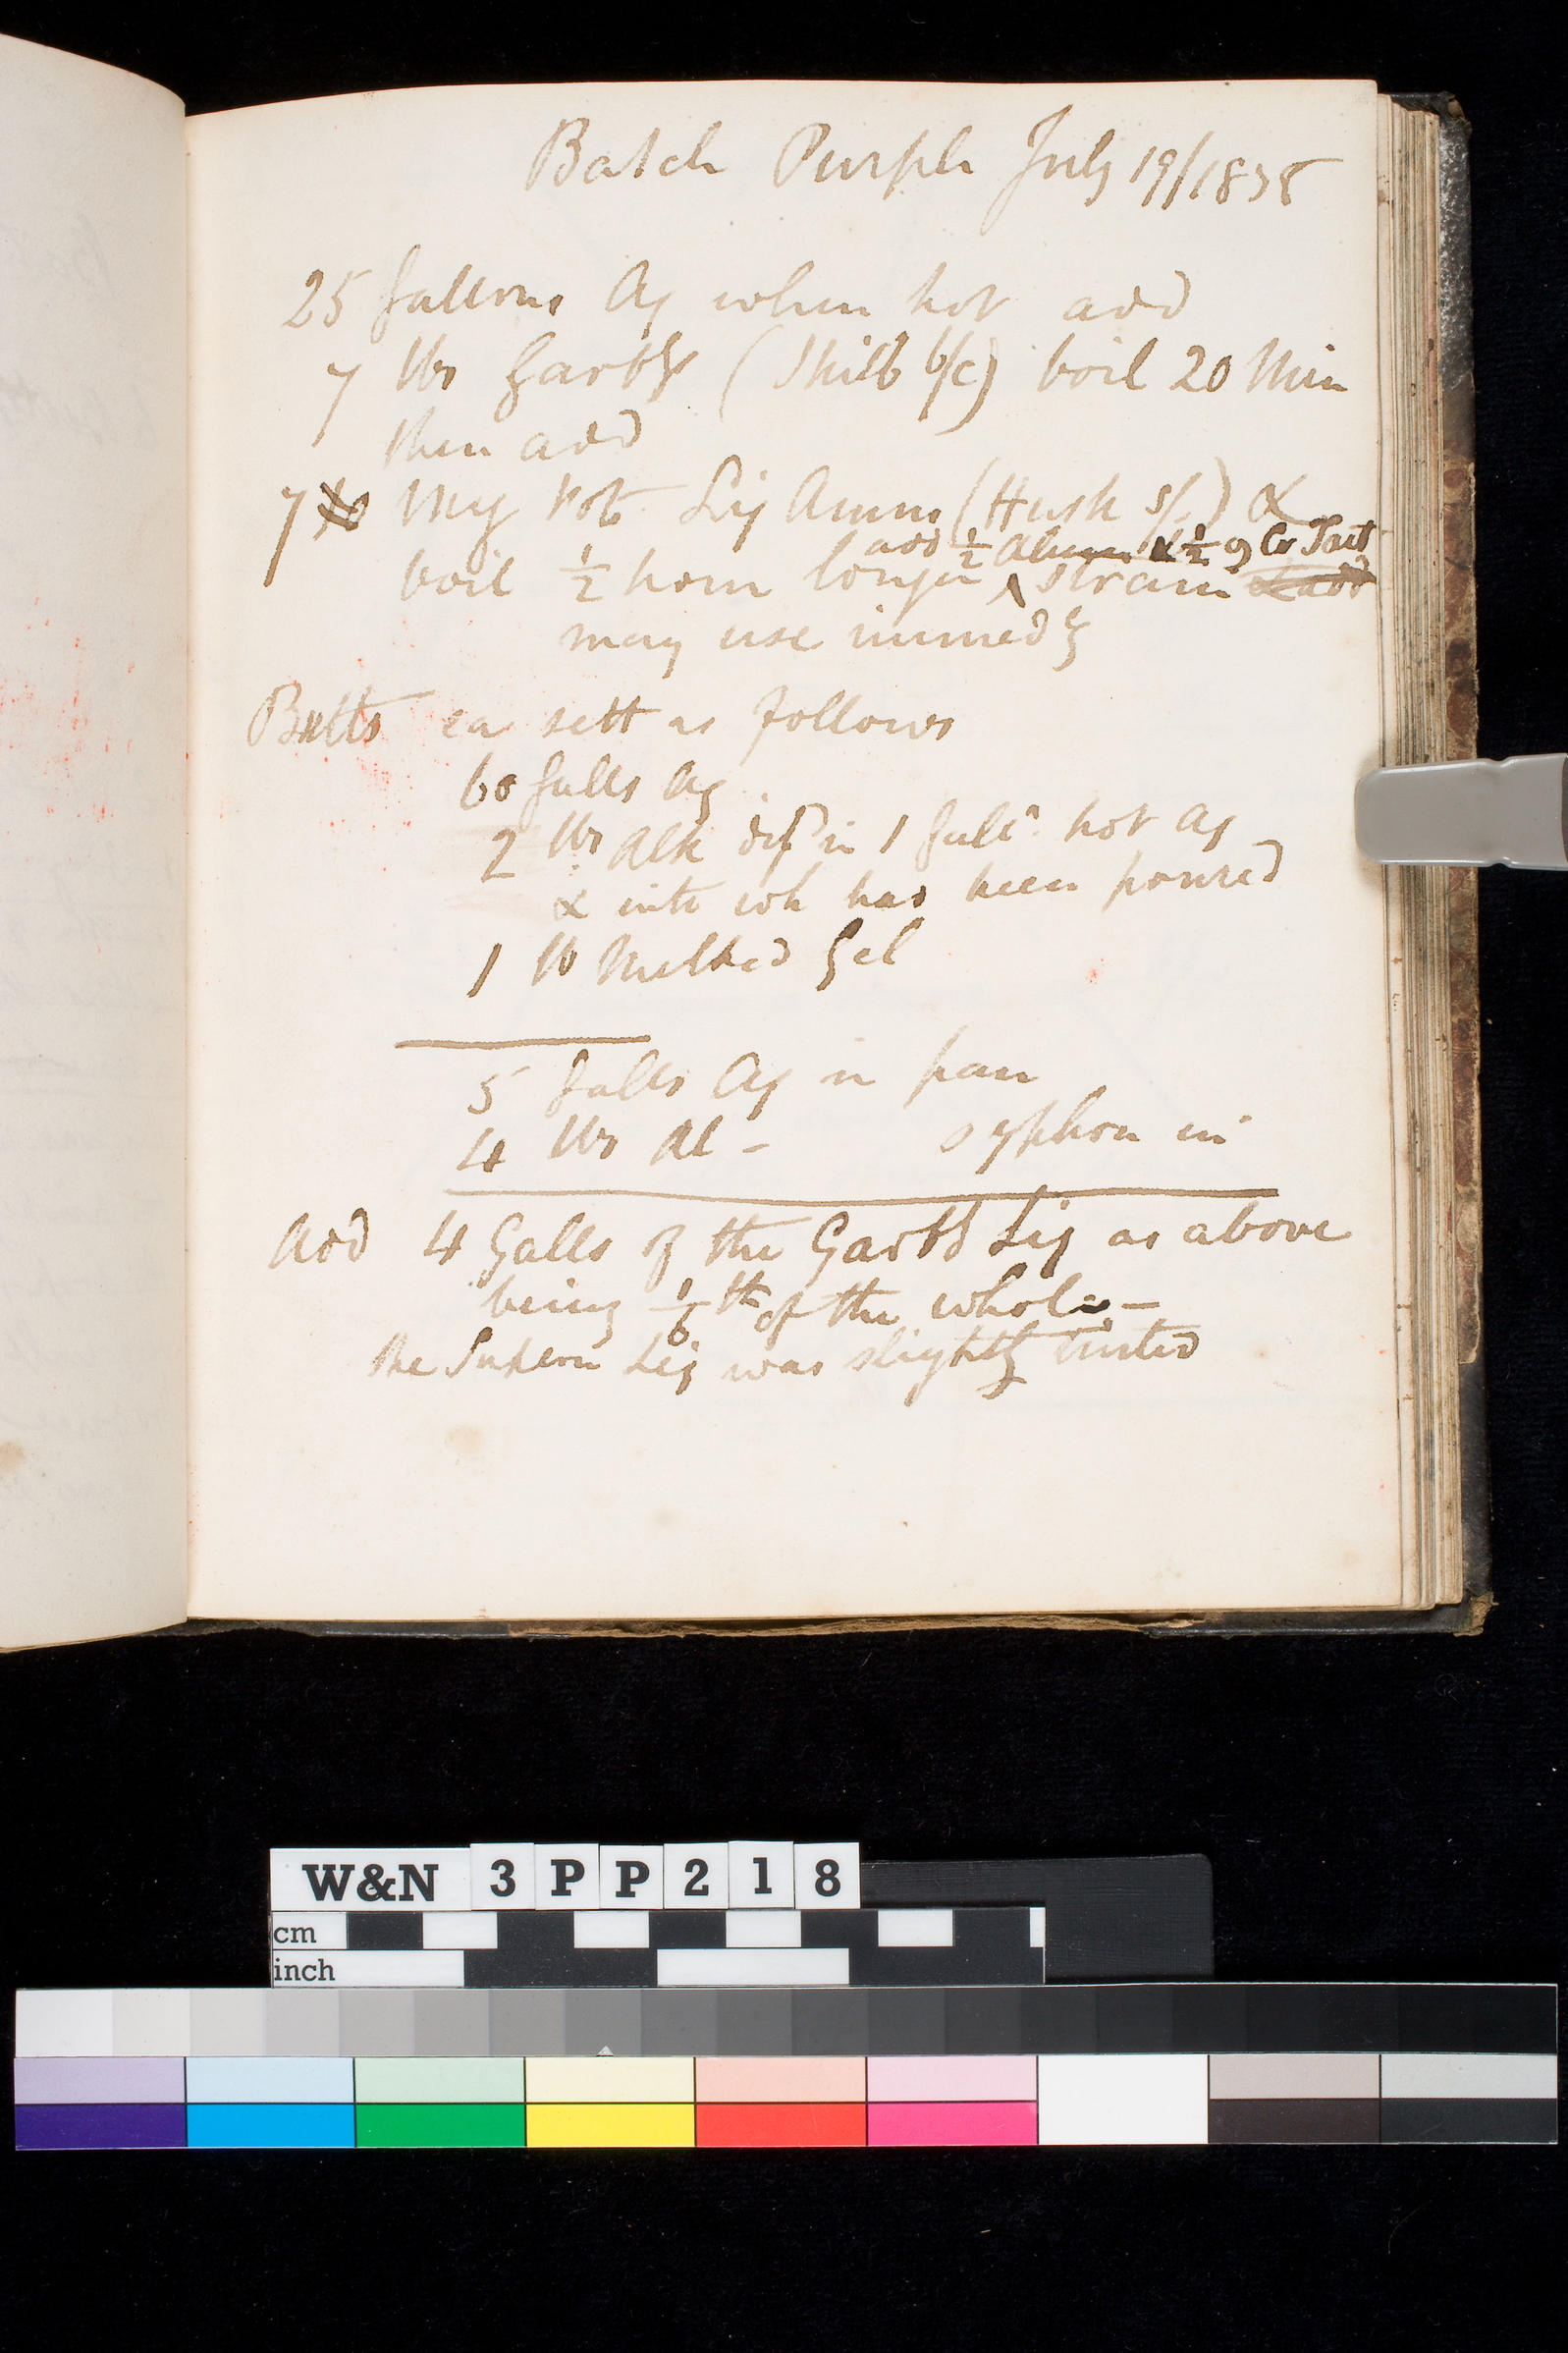 Batch Purple July 19/1838
25 Gallons Aq when hot add
7 lbs Garbg (Shilb b/c) boil 20 Min
then add
7 lb Mg hot Liq Amm (Hush s/.) &
add ½ Alum & ½ Cr Tart
boil ½ hour longer ^ strain & add
may use immedy
Butts ea sett as follows
60 Galls Aq
2 lbs Alk in 1 Gall hot Aq
& into wh has been poured
1 lb Melted Gel
5 Galls Aq in pan
4 lbs Al - syphon in
Add 4 Galls of the Liq as above
being 1/6 th of the whole —
the Supern Liq was slightly tinted
W&N 3PP218
cm
inch